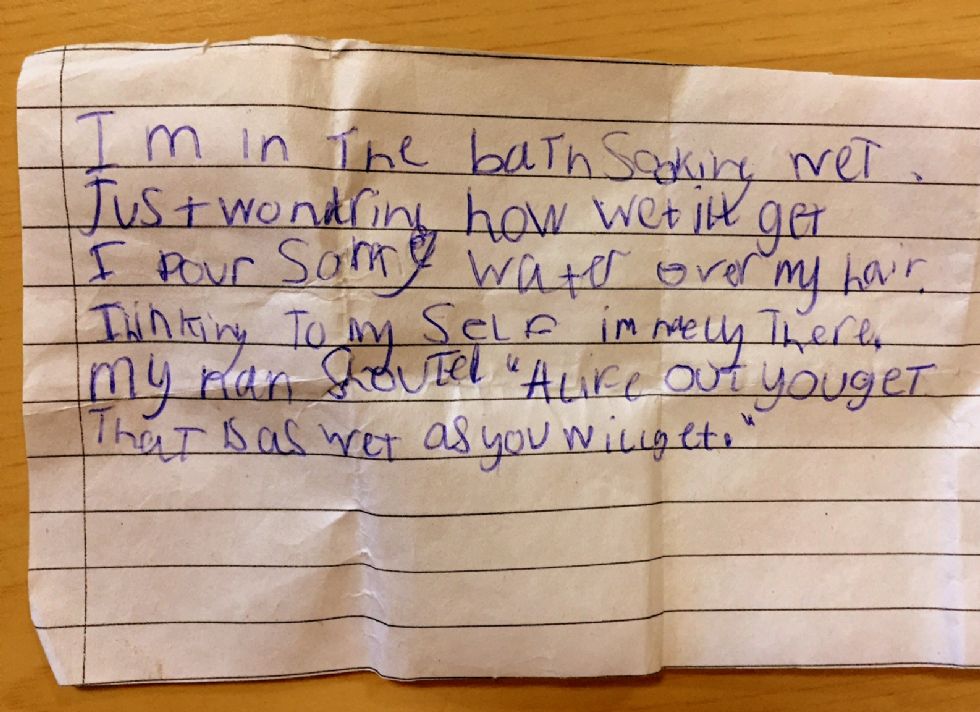 Im in The baTh Sooking weT.
Just wondring how wet ill get
I pour Some water over my hair.
Thinking To my SeLF im nnely There.
my nan ShouTed "ALife out you geT
ThaT is as wet as you will get."